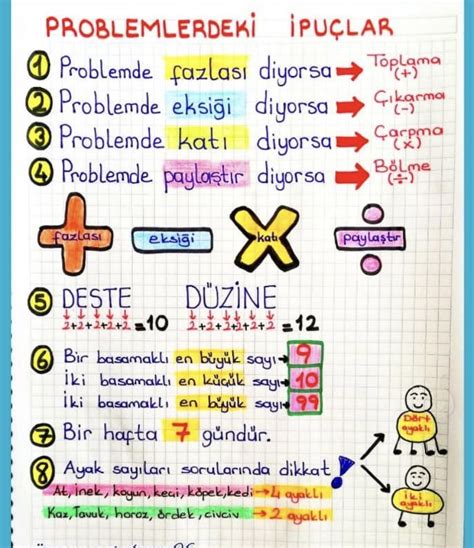 PROBLEMLERDEKİ İPUÇLAR
1 Problemde fazlası diyorsa → Toplama (+)
2 Problemde eksiği diyorsa → Çıkarma (-)
3 Problemde katı diyorsa → Çarpma (x)
4 Problemde paylaştır diyorsa → Bölme (÷)
fazlası eksiği katı paylaştır
5 DESTE DÜZİNE
2+2+2+2+2 =10 2+2+2+2+2+2 =12
6 Bir basamaklı en büyük sayı→ 9
İki basamaklı en küçük sayı→ 10
İki basamaklı en büyük sayı→ 99
7 Bir hafta 7 gündür.
8 Ayak sayıları sorularında dikkat !
Dört ayaklı
At, inek, koyun, keçi, köpek, kedi → 4 ayaklı
İki ayaklı
Kaz, Tavuk, horoz, ördek, civciv → 2 ayaklı